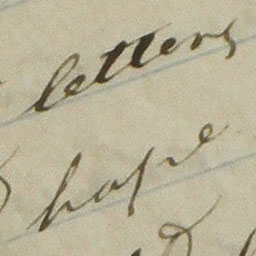 letters
hope